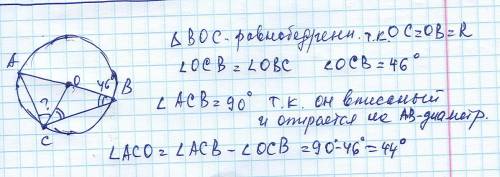 A
O
46°
B
?
C
△BOC - равнобедренн. т.к. OC=OB=R
∠OCB = ∠OBC ∠OCB = 46°
∠ACB = 90° т.к. он вписаный
и опирается на AB-диаметр.
∠ACO = ∠ACB - ∠OCB = 90°-46°=44°